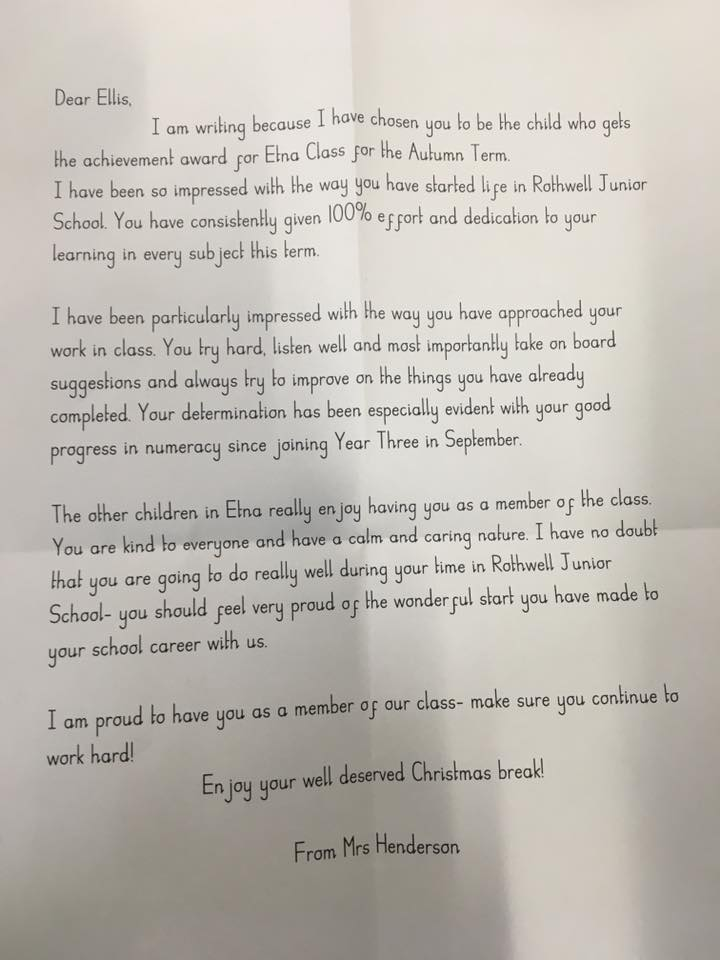 Dear Ellis,
I am writing because I have chosen you to be the child who gets
the achievement award for Etna Class for the Autumn Term.
I have been so impressed with the way you have started life in Rothwell Junior
School. You have consistently given 100% effort and dedication to your
learning in every subject this term.
I have been particularly impressed with the way you have approached your
work in class. You try hard, listen well and most importantly take on board
suggestions and always try to improve on the things you have already
completed. Your determination has been especially evident with your good
progress in numeracy since joining Year Three in September.
The other children in Etna really enjoy having you as a member of the class.
You are kind to everyone and have a calm and caring nature. I have no doubt
that you are going to do really well during your time in Rothwell Junior
School- you should feel very proud of the wonderful start you have made to
your school career with us.
I am proud to have you as a member of our class- make sure you continue to
work hard!
Enjoy your well deserved Christmas break!
From Mrs Henderson